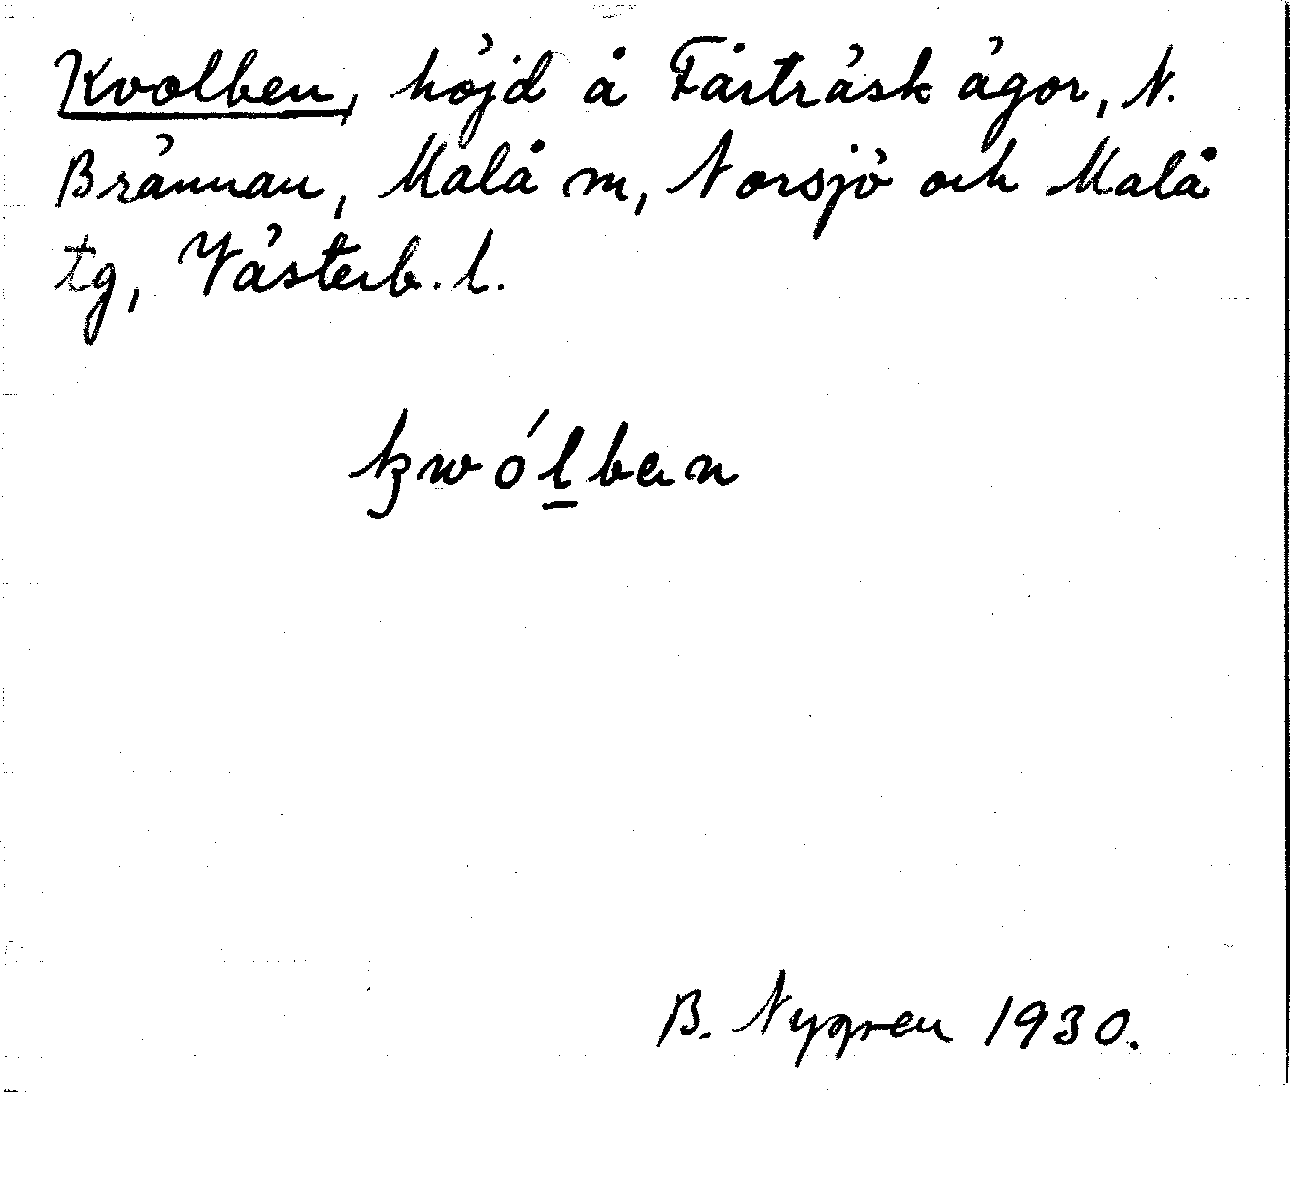 Kvolben, höjd å Fårträsk ägor, N.
Brännan, Malå m, Norsjö och Malå
tg, Västerb. l.
kwólban
B. Nygren 1930.